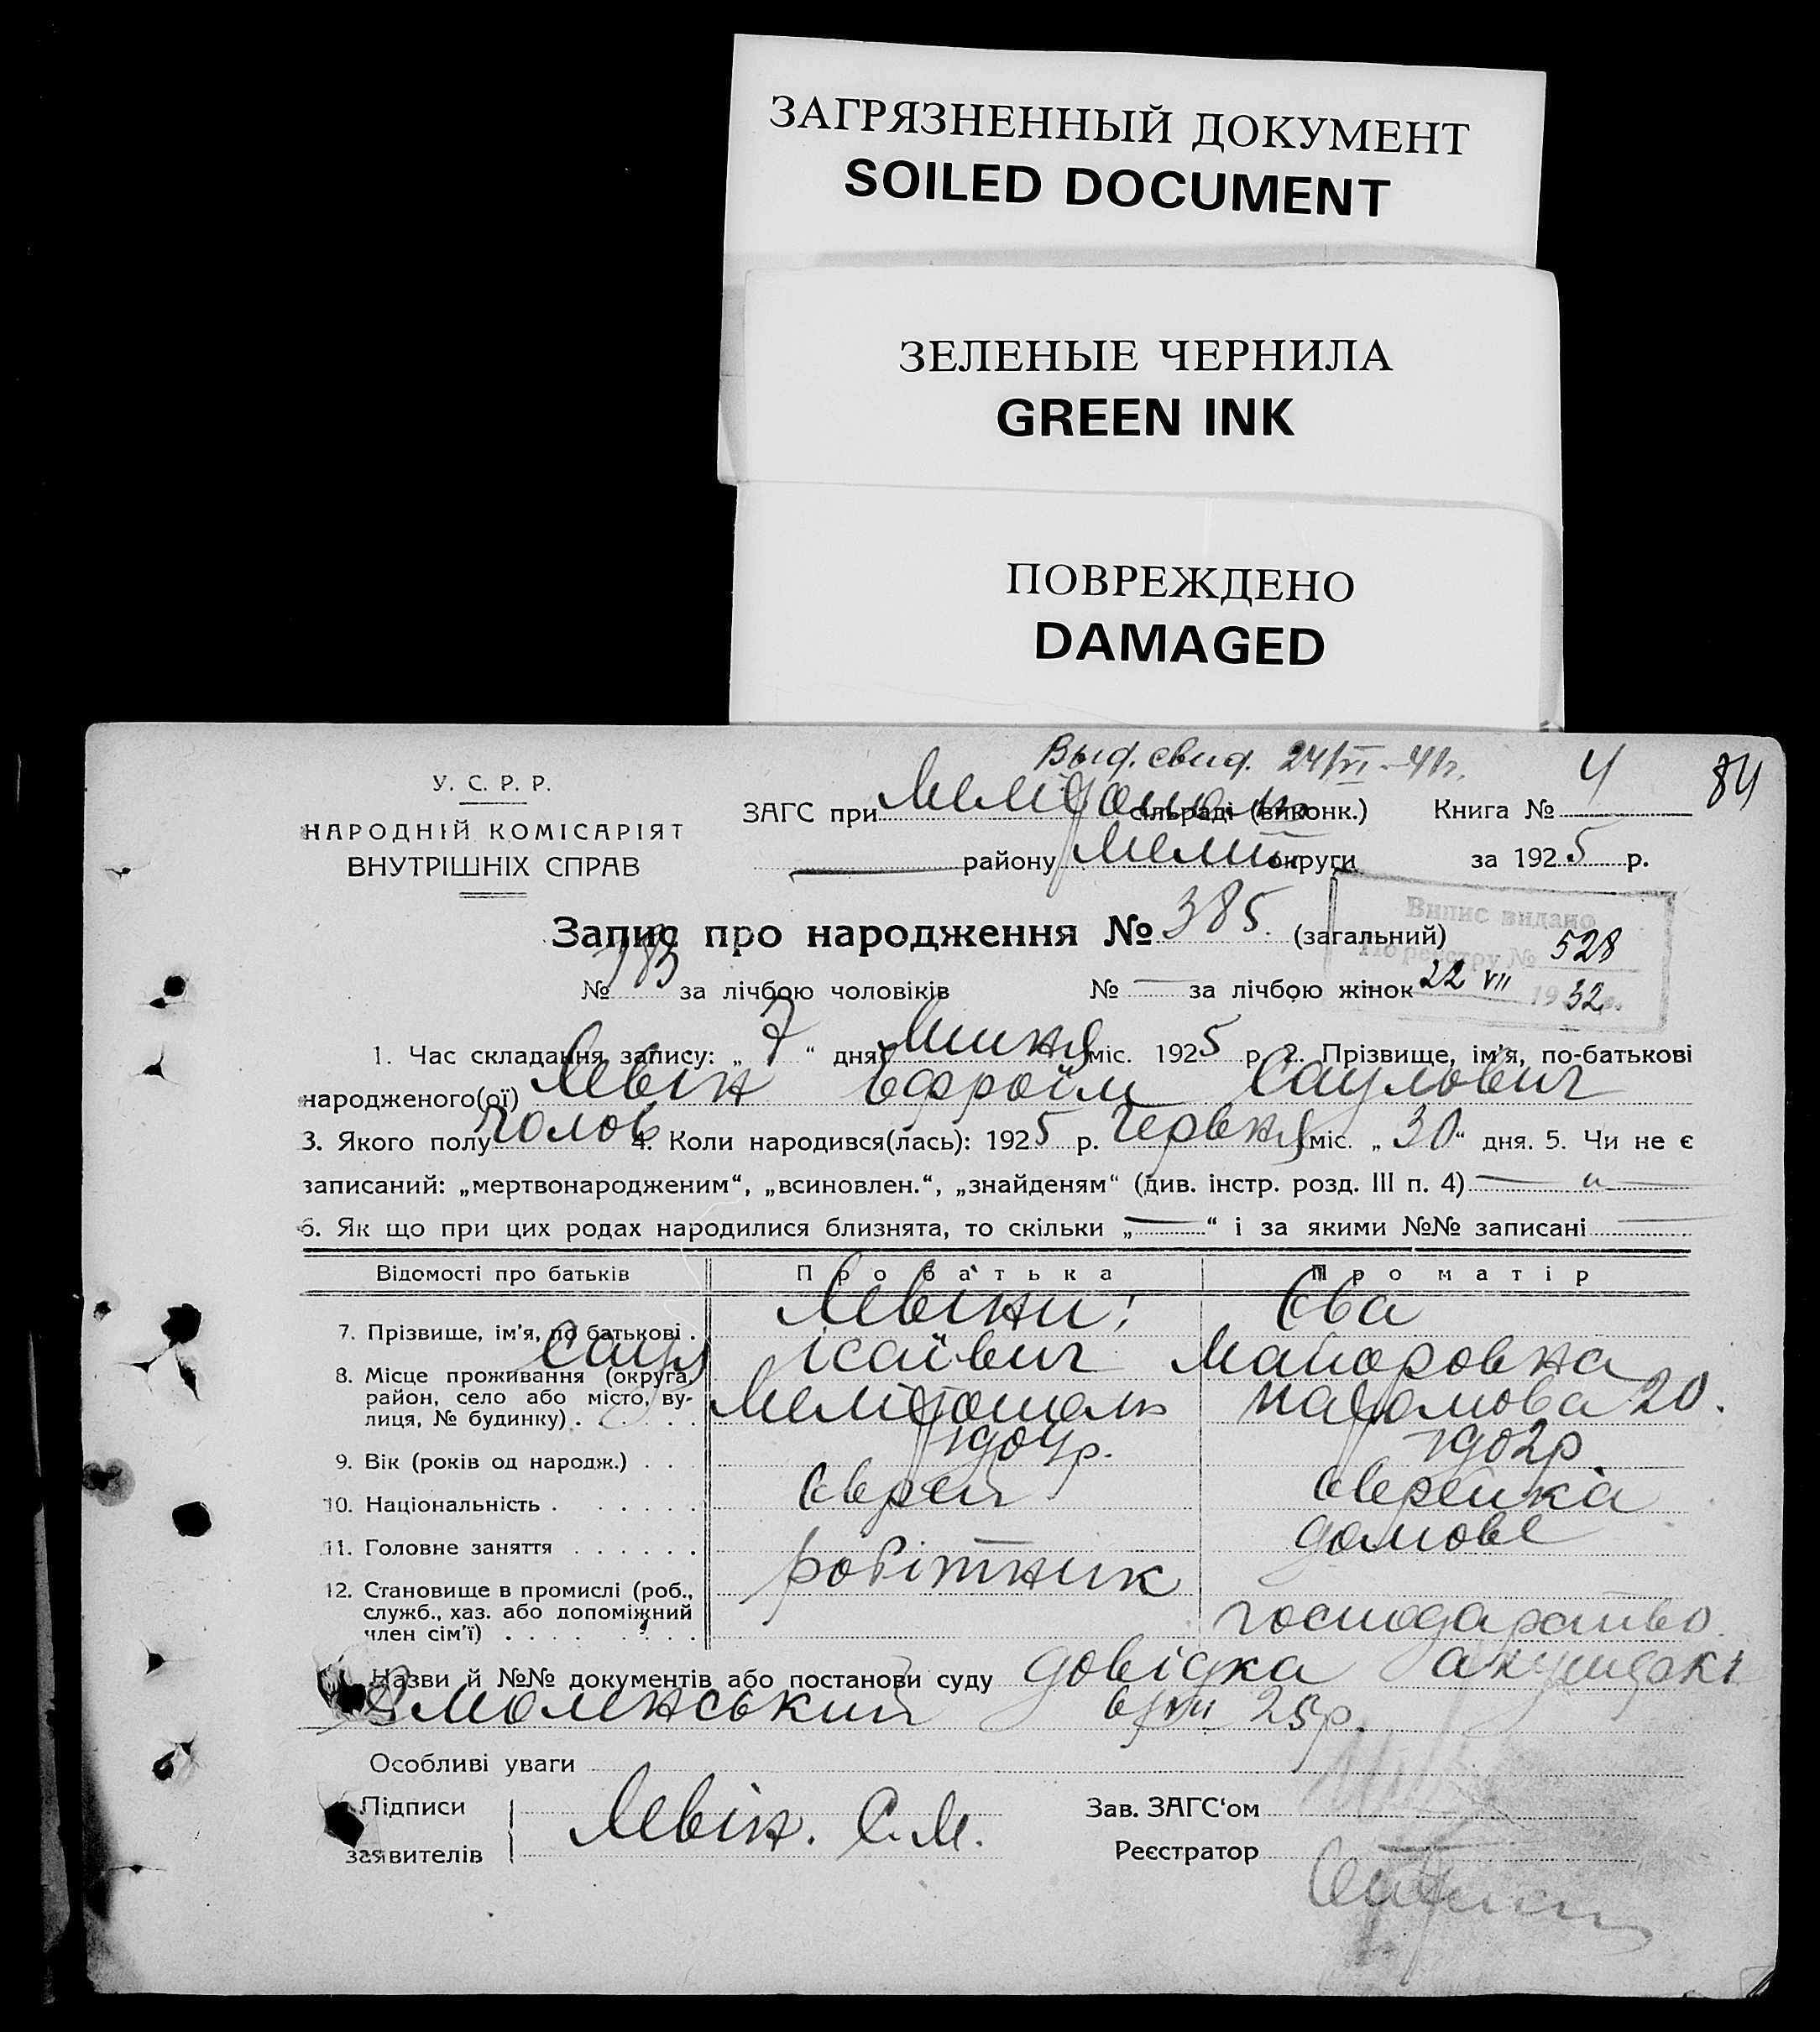 ЗАГРЯЗНЕННЫЙ ДОКУМЕНТ
SOILED DOCUMENT
ЗЕЛЕНЫЕ ЧЕРНИЛА
GREEN INK
ПОВРЕЖДЕНО
DAMAGED
Выд. свид. 24/VI-41г.
84
У. С. Р. Р.
НАРОДНІЙ КОМІСАРІЯТ
ВНУТРІШНІХ СПРАВ
ЗАГС при Мелітополь сільраді (виконк.) Книга № 4
району Меліт округи за 1925 р.
Запис про народження № 385. (загальний)
Випис видано
По реєстру № 528
22 VII 1932 р.
№ 183 за лічбою чоловіків № — за лічбою жінок
1. Час складання запису: „ 7 “ дня Липня міс. 1925 р. 2. Прізвище, ім'я, по-батькові
народженого(ої) Левін Ефроїм Саулович
3. Якого полу чолов 4. Коли народився(лась): 1925 р. Червня міс. „ 30 “ дня. 5. Чи не є
записаний: „мертвонародженим“, „всиновлен.“, „знайденям“ (див. інстр. розд. III п. 4) — „ —
6. Як що при цих родах народилися близнята, то скільки „—“ і за якими №№ записані —
Відомості про батьків Про батька Про матір
7. Прізвище, ім'я, по батькові . Левіни: Саул Ісаївич Єва Майоровна
8. Місце проживання (округа, район, село або місто, вулиця, № будинку) . Мелітополь 20.
9. Вік (років од народж.) . . 1902р
10. Національність . . . . . . Єврей Єврейка
11. Головне заняття . . . . . . домове
12. Становище в промислі (роб., служб., хаз. або допоміжний член сім'ї) . . . . робітник господарство
Назви й №№ документів або постанови суду довідка акушерки
Смоленський 6/VII 25р.
Особливі уваги
Підписи
заявителів
Левін. С. М.
Зав. ЗАГС‘ом
Реєстратор